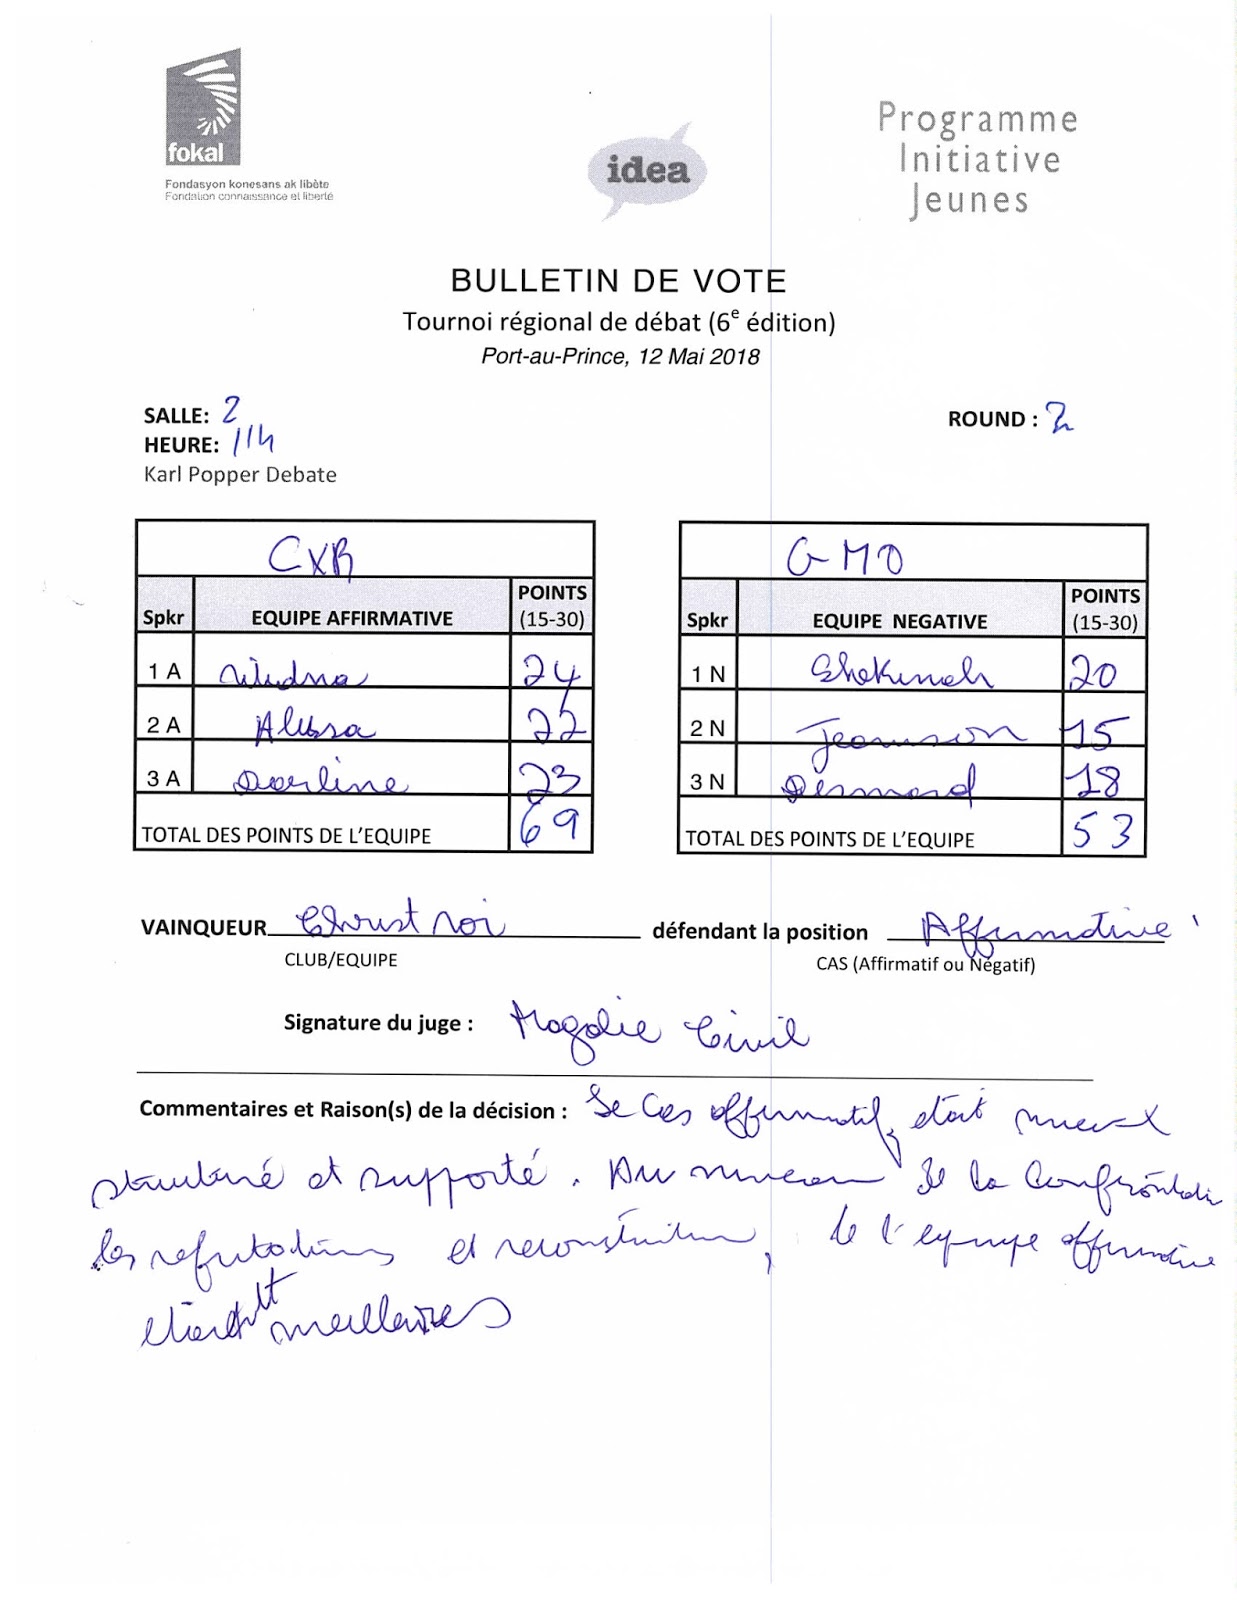 fokal
Fondasyon konesans ak libète
Fondation connaissance et liberté
idea
Programme
Initiative
Jeunes
BULLETIN DE VOTE
Tournoi régional de débat (6e édition)
Port-au-Prince, 12 Mai 2018
SALLE: 2
ROUND : 2
HEURE: 11h
Karl Popper Debate
CXR
Spkr EQUIPE AFFIRMATIVE POINTS (15-30)
1 A 24
2 A Alissa 22
3 A Darline 23
TOTAL DES POINTS DE L'EQUIPE 69
GMO
Spkr EQUIPE NEGATIVE POINTS (15-30)
1 N Shekinah 20
2 N Jeamson 15
3 N 18
TOTAL DES POINTS DE L'EQUIPE 53
VAINQUEUR Christ roi défendant la position Affirmative
CLUB/EQUIPE CAS (Affirmatif ou Négatif)
Signature du juge : Magalie Civil
Commentaires et Raison(s) de la décision : Le Cas affirmatif, était mieux
structuré et supporté. Au niveau de la Confrontation
les refutations et reconstruction, de l'equipe affirmative
étaient meilleures